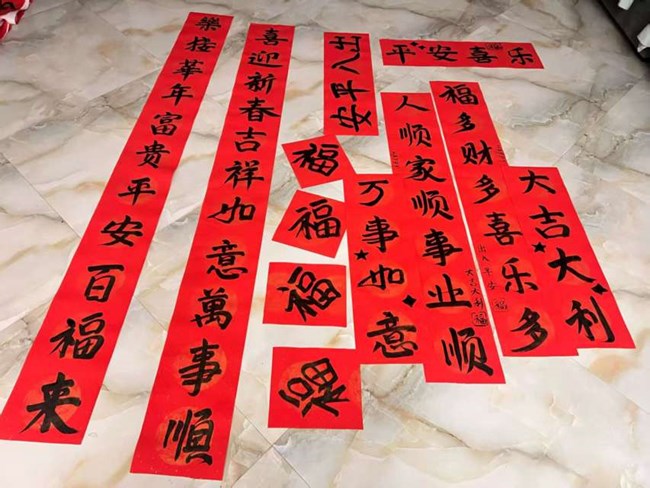 樂接華年富貴平安百福来
喜迎新春吉祥如意萬事順
出入平安
平安喜乐
福
福
福
福
万事如意
人顺家顺事业顺
大吉大利
福多财多喜乐多
出入平安
大吉大利